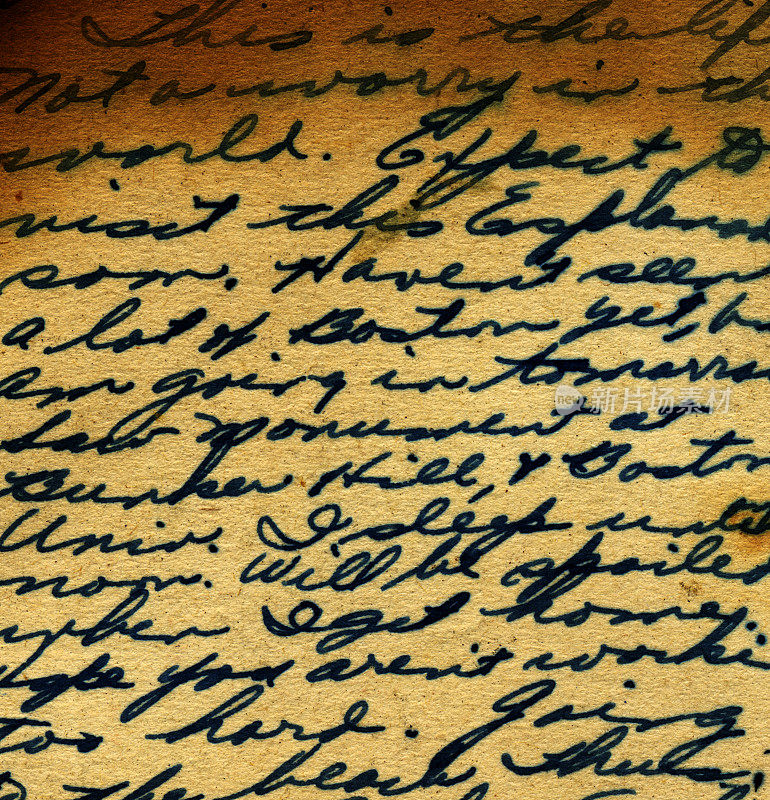 This is the life
Not a worry in the
world. Expect to
visit this Esplanad
soon. Haven't seen
a lot of Boston yet, bu
am going in tomorrow
Saw monument at
Bunker Hill, & Boston
Univ. I sleep until
noon. Will be spoiled
when I get home.
Hope you aren't worki
too hard. Going
the beach Thurs.
新图网 NEW.IXINTU.COM